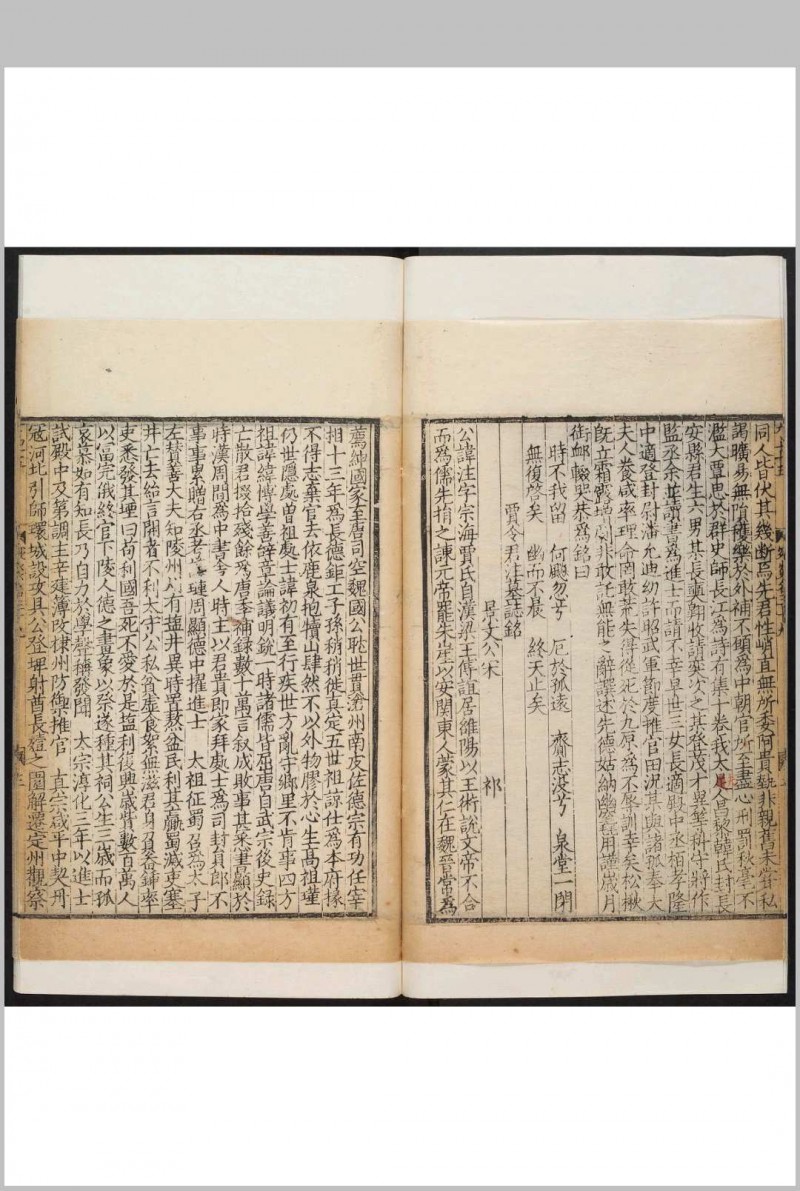 同人皆伏其幾斷焉先君性峭直無所委阿貴埶非親舊未嘗私
謁曠易無隋積樂於外補不願為中朝官所至盡心刑罰秋毫不
濫大覃思於群史師長江為詩有集十卷我大 昌黎韓氏封長
安縣君生六男其長
監丞余並讀書為進士而請不幸早世三女長適殿中丞栢孝隆
中適登封尉潘允迪幼許昭武軍節度推官田況其與諸孤奉大
夫人養咸率理命罔敢荒失得從死於九原為不辱訓幸矣松楸
既立霜露 非敢託無能之辭譔述先德姑納幽竁用謹歲月
銜卹輟哭 為銘曰
時不我留 何颷忽兮 厄於孤遠 齎志沒兮 泉堂一閉
無復啓矣 幽而不晨 終天止矣
賈令君注墓誌銘
景文公宋 祁
公諱注字宗海賈氏自漢梁王傅誼居雒陽以王術說文帝不合
而為儒先捐之諫元帝罷朱崖以安關東人蒙其仁在魏晉常為
薦紳國家至唐司空魏國公耽世貫滄州南皮佐德宗有功任宰
相十三年為長德鉅工子孫稍稍徙真定五世祖諒仕為本府掾
不得志棄官去依鹿泉抱犢山肆然不以外物膠於心生高祖瑾
仍世隱處曽祖處士諱初有至行疾世方亂守鄉里不肯事四方
祖諱緯博學善辭章論議明銳一時諸儒皆屈唐自武宗後史録
亡散君掇拾殘餘為唐季補録數十萬言叙成敗事甚悉書顯於
時漢周間為中書舍人時主以君貴即家拜處士為司封員郎不
事事累贈右丞考 璉周顯德中擢進士 太祖征蜀召為太子
左賛善大夫知陵州州有塩井異時置熬盆民利其贏蜀減吏塞
井亡去紿言開者不利太守公私貧虛食絮無滋君身負畚鍤率
吏悉發其堙曰苟利國吾死不愛於是塩利復興歲貲數百萬人
以富完俄終官下陵人德之畫象以祭遂種其祠公生三歲而孤
哀慕如有知長乃自力於學聲稱發聞 太宗淳化三年以進士
試殿中及第調主幸建簿改棣州防禦推官 真宗咸平中契丹
寇河北引師環城設攻具公登埤射酋長殪之圍解遷定州觀察